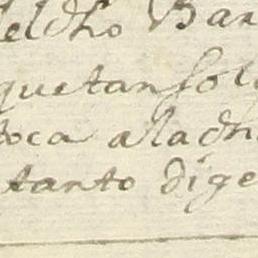 deldho Bar
quetansolo
toca aladh
tanto dige